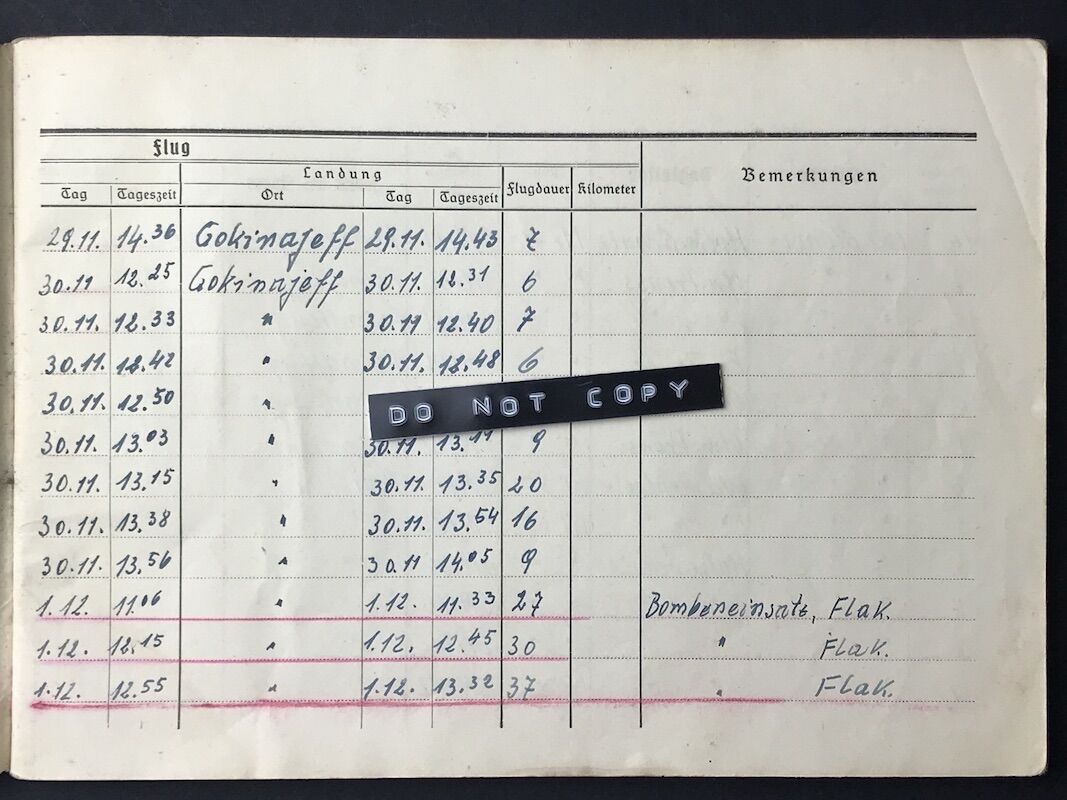 Flug
Landung
Bemerkungen
Tag Tageszeit Ort Tag Tageszeit Flugdauer Kilometer
29.11. 14.36 Gokinajeff 29.11. 14.43 7
30.11 12.25 Gokinajeff 30.11. 12.31 6
30.11. 12.33 " 30.11 12.40 7
30.11. 12.42 " 30.11. 12.48 6
30.11. 12.50 "
DO NOT COPY
30.11. 13.03 " 30.11. 13.11 9
30.11. 13.15 " 30.11. 13.35 20
30.11. 13.38 " 30.11. 13.54 16
30.11. 13.56 " 30.11 14.05 9
1.12. 11.06 " 1.12. 11.33 27 Bombeneinsatz, Flak.
1.12. 12.15 " 1.12. 12.45 30 " Flak.
1.12. 12.55 " 1.12. 13.32 37 " Flak.